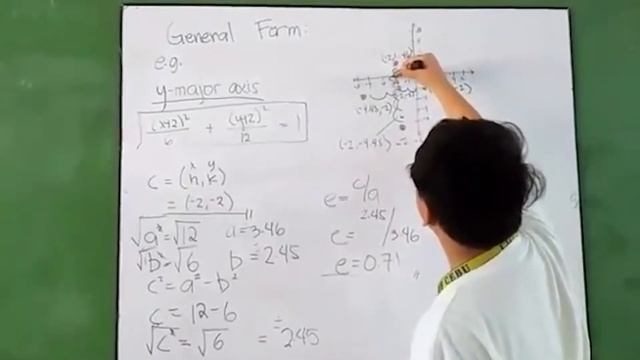 General Form:
e.g.
y-major axis
(x+2)²/6 + (y+2)²/12 = 1
x y
C = (h, k)
= (-2, -2)
√a² = √12 a = 3.46
√b² = √6 b = 2.45
c² = a² - b²
c = 12 - 6
√c² = √6 = 2.45
e = c/a
e = 2.45/3.46
e = 0.71
(-4.45, -2)
(-2, -4.45)
CEBU